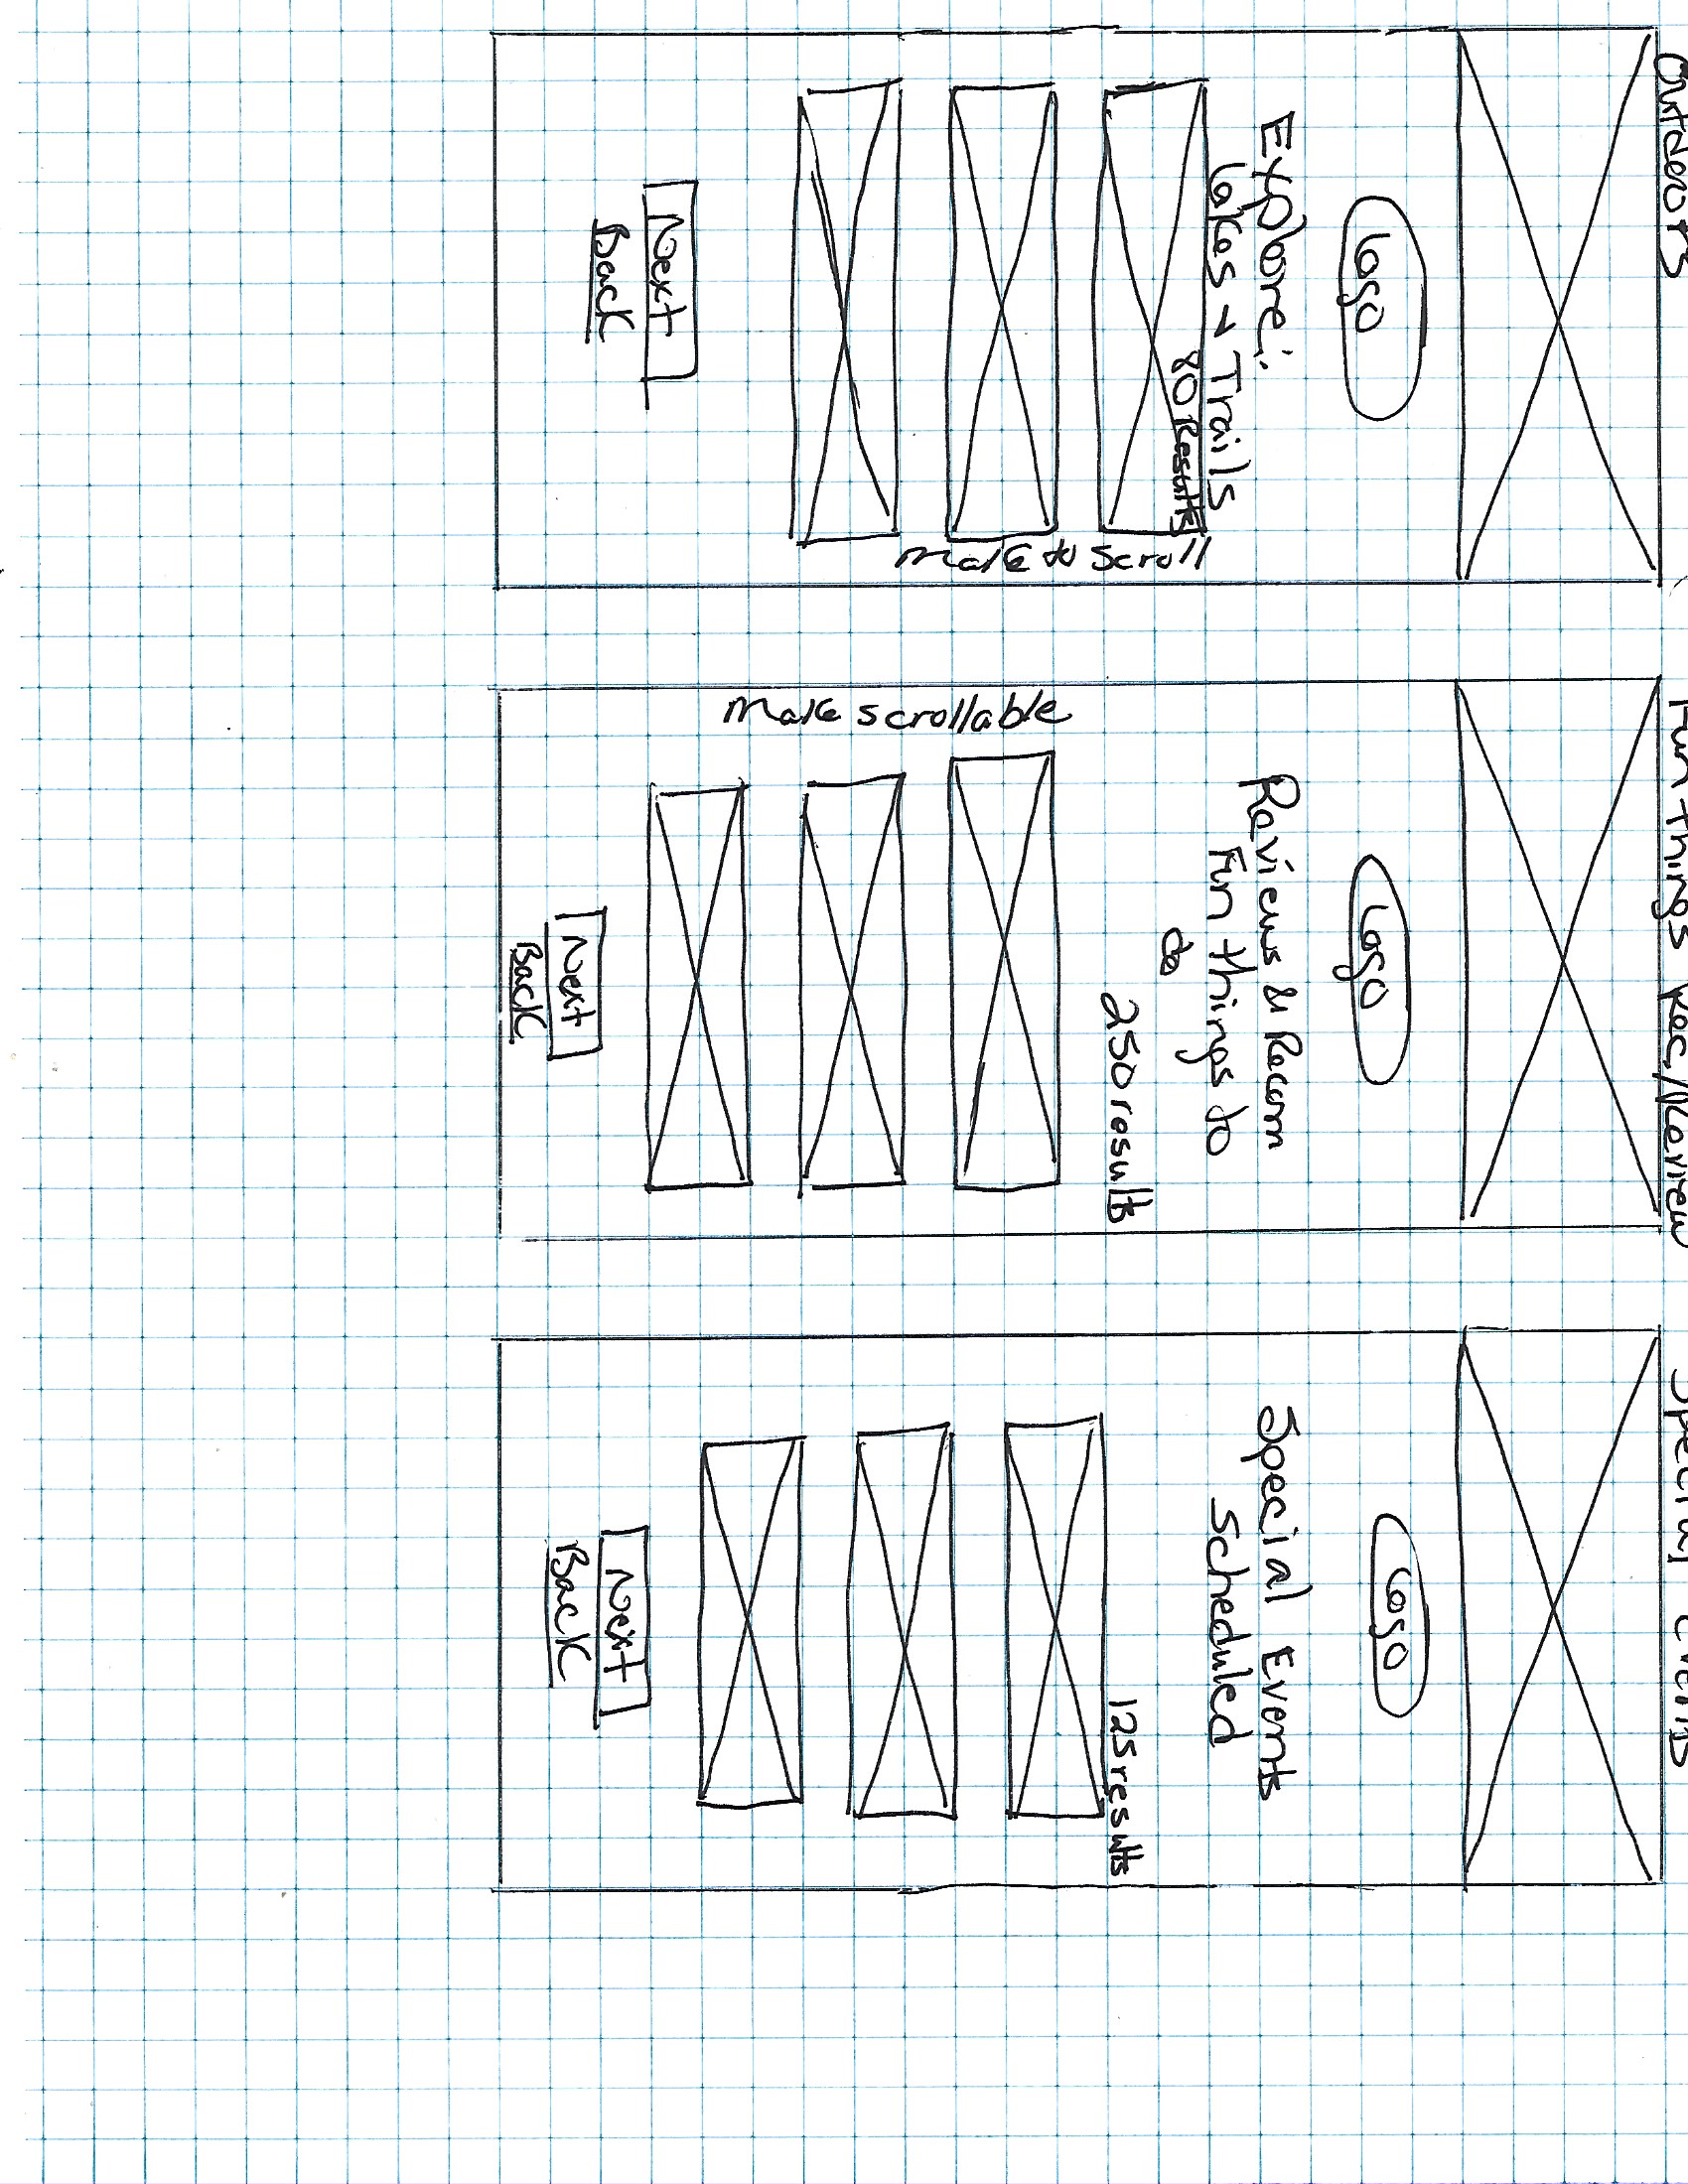 Outdoors
Logo
Explore:
Lakes & Trails
80 Results
Make to scroll
Next
Back
Fun things Rec/Review
Logo
Reviews & Recom
Fun things to
do
250 results
Make scrollable
Next
Back
Special Events
Logo
Special Events
Scheduled
125 results
Next
Back